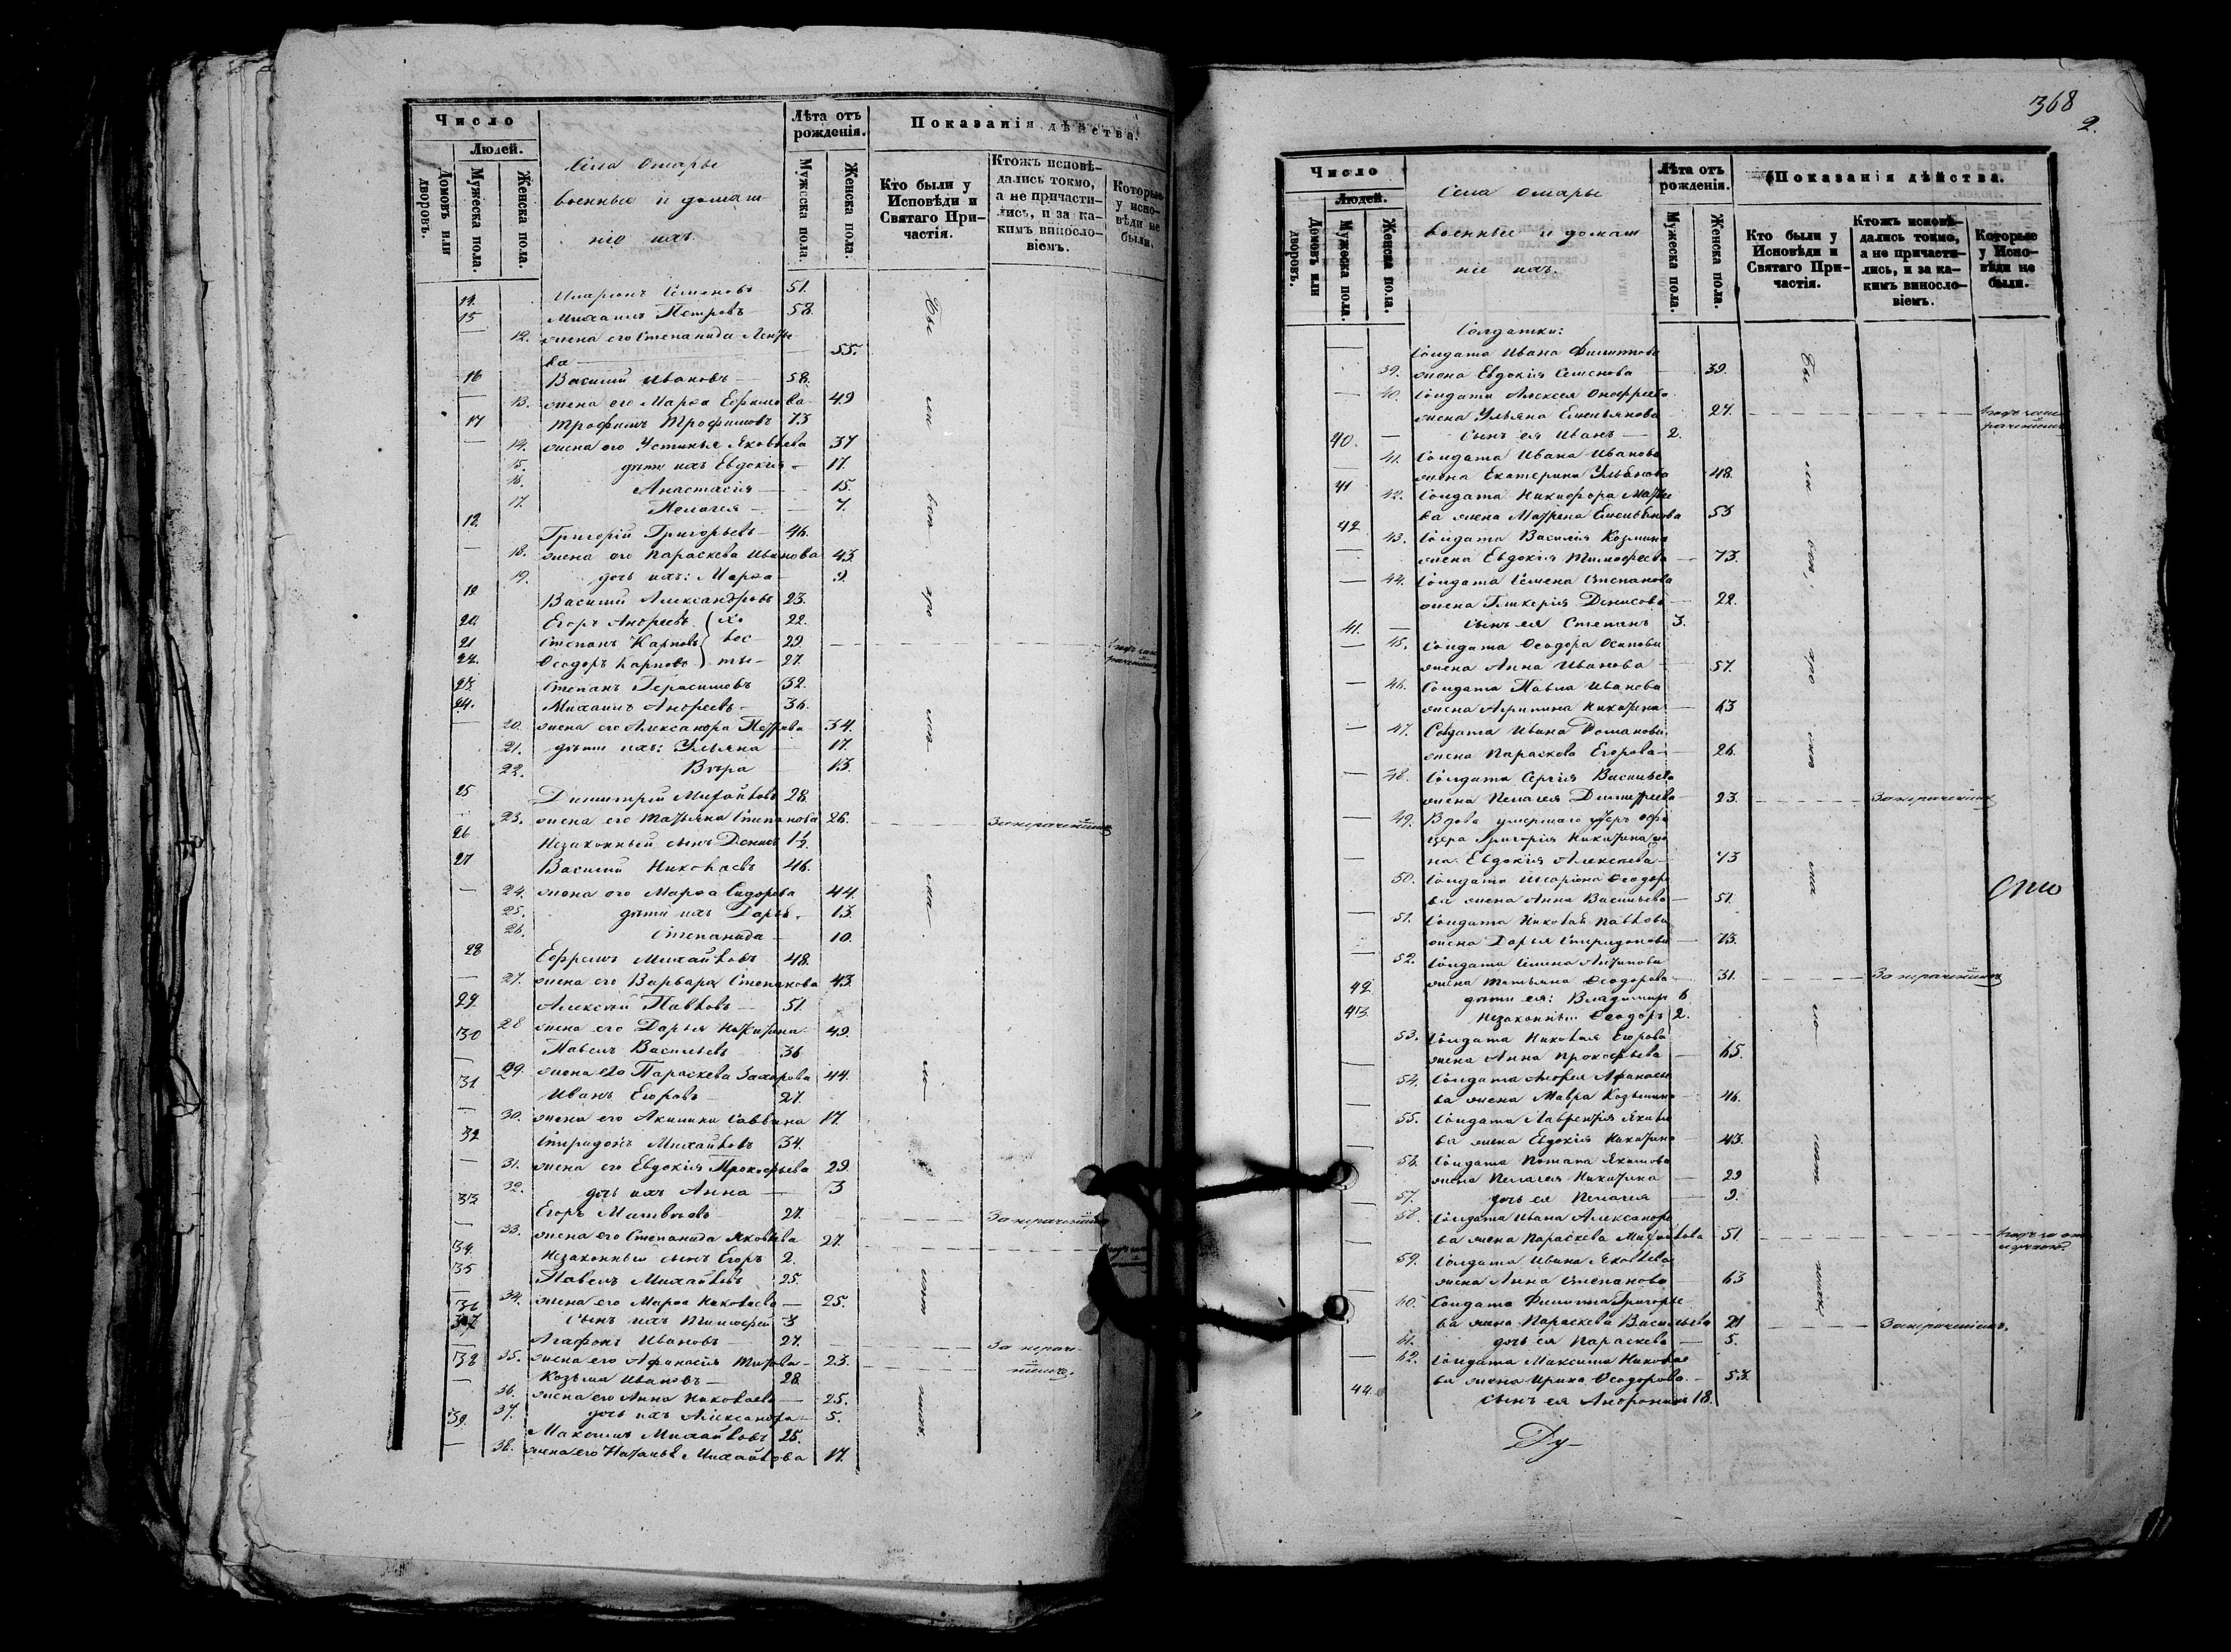 Число
Людей.
Домовъ или дворовъ.
Мужеска пола.
Женска пола.
Села Отары
военные и домаш-
ніе ихъ
Лѣта отъ рожденія.
Мужеска пола.
Женска пола.
Показанія дѣйства.
Кто были у Исповѣди и Святаго Причастія.
Ктожъ исповѣ-
дались токмо,
а не причасти-
лись, и за ка-
кимъ винословіемъ.
Которые
у испо-
вѣди не
были.
14. Иларіонъ Семеновъ 51.
15 Михаилъ Петровъ 58.
12. жена его Степанида
ва 55.
16 Василій Ивановъ 58.
13. жена его Марѳа Ефимова 49
17 Трофимъ Трофимовъ 73
14. жена его Устинья Яковлева 37
15. дѣти ихъ Евдокія 17.
16. Анастасія 15.
17. Пелагея 7.
18. Григорій Григорьевъ 46.
18. жена его Параскева Иванова 43
19. дочь ихъ: Марѳа 9.
19 Василій Александровъ 23.
20 Егоръ Андреевъ 22.
21 Степанъ Карповъ 29.
22. Ѳеодоръ Карповъ 27.
23. Степанъ Герасимовъ 32.
24. Михаилъ Андреевъ 36.
20. жена его Александра Петрова 34.
21. дѣти ихъ: Ульяна 17.
22. Вѣра 13.
25 Димитрій Михайловъ 28.
23. жена его Татьяна Степанова 26. За нераченіемъ
26 Незаконный сынъ Денис 1½.
27 Василій Николаевъ 46.
24. жена его Марѳа Сидорова 44.
25. дѣти ихъ Дарья 13.
26. Степанида 10.
28 Ефремъ Михайловъ 48.
27. жена его Варвара Степанова 43.
29. Алексѣй Павловъ 51.
28 жена его Дарья Никитина 49.
30 Павелъ Васильевъ 36
29. жена его Параскева Захарова 44.
31 Иванъ Егоровъ 27.
30. жена его Акилина Саввина 17.
32 Спиридонъ Михайловъ 34.
31. жена его Евдокія Прокофьева 29.
32. дочь ихъ Анна 3
33 Егоръ Матвѣевъ 27. За нераченіемъ
33. жена его Степанида Яковлева 27.
34. Незаконный сынъ Егоръ 2.
35 Павелъ Михайловъ 25.
34. жена его Марѳа Николаева 25.
36 сынъ ихъ Тимофей 3
37 Агафонъ Ивановъ 27. За нерач-
35. жена его Афанасія Титова 23. ніемъ.
38 Козьма Ивановъ 28.
36. жена его Анна Николаева 25.
37. дочь ихъ Александра 5.
39. Максимъ Михайловъ 25.
38. жена его Наталья Михайлова 17.
368
2.
Число
Людей.
Домовъ или дворовъ.
Мужеска пола.
Женска пола.
Села Отары
военные и домаш
ніе ихъ.
Лѣта отъ рожденія.
Мужеска пола.
Женска пола.
Показанія дѣйства.
Кто были у Исповѣди и Святаго Причастія.
Ктожъ исповѣ-
дались токмо,
а не причасти-
лись, и за ка-
кимъ виносло-
віемъ.
Которые
у Испо-
вѣди не
были.
Солдатки:
Солдата Ивана Филиппова
39. жена Евдокія Семенова 39.
40. Солдата Алексея Онофріева
жена Ульяна Емельянова 27.
40. сынъ ея Иванъ 2.
41. Солдата Ивана Иванова
жена Екатерина Ульянова 48.
41 42. Солдата Никифора Матве
ва жена Матрена Емельянова 53
42 43. Солдата Василія Козмина
жена Евдокія Тимофеева 73.
44. Солдата Семена Степанова
жена Гликерія Денисова 22.
41. сынъ ея Степанъ 3.
45. Солдата Ѳеодора Осипова
жена Анна Иванова 57.
46. Солдата Павла Иванова
жена Агрипина Никитина 63
47. Солдата Ивана Романова
жена Параскева Егорова 26.
48. Солдата Сергія Васильева
жена Пелагея Димитреева 23. За нераченіемъ
49. Вдова умершаго унтеръ офи
цера Григорія Никитина же
на Евдокія Алексеева 73
50. Солдата Иларіона Ѳеодоро
ва жена Анна Васильева 51. Сто
51. Солдата Николая Павлова
жена Дарья Спиридонова 73.
52. Солдата Семена Антипова
жена Татьяна Ѳеодорова 31. За нераченіемъ
42. дѣти ея: Владимиръ 6
43. Незаконный Ѳеодоръ 2.
53. Солдата Николая Егорова
жена Анна Прокофьева 65.
54. Солдата Андрея Афанасье
ва жена Мавра Козьмина 46.
55. Солдата Лаврентія Яковле
ва жена Евдокія Никитина 43.
56. Солдата Потапа Якимова
жена Пелагея Никитина 29
57. дочь ея Пелагея 9.
58. Солдата Ивана Александро
ва жена Параскева Михайлова 51
59. Солдата Ивана Яковлева
жена Анна Степанова 63
60. Солдата Филиппа Григорье
ва жена Параскева Васильева 21 За нераченіемъ.
61. дочь ея Параскева 5.
62. Солдата Максима Николае
ва жена Ирина Ѳеодорова 53.
44. сынъ ея Андроникъ 18.
Ду-